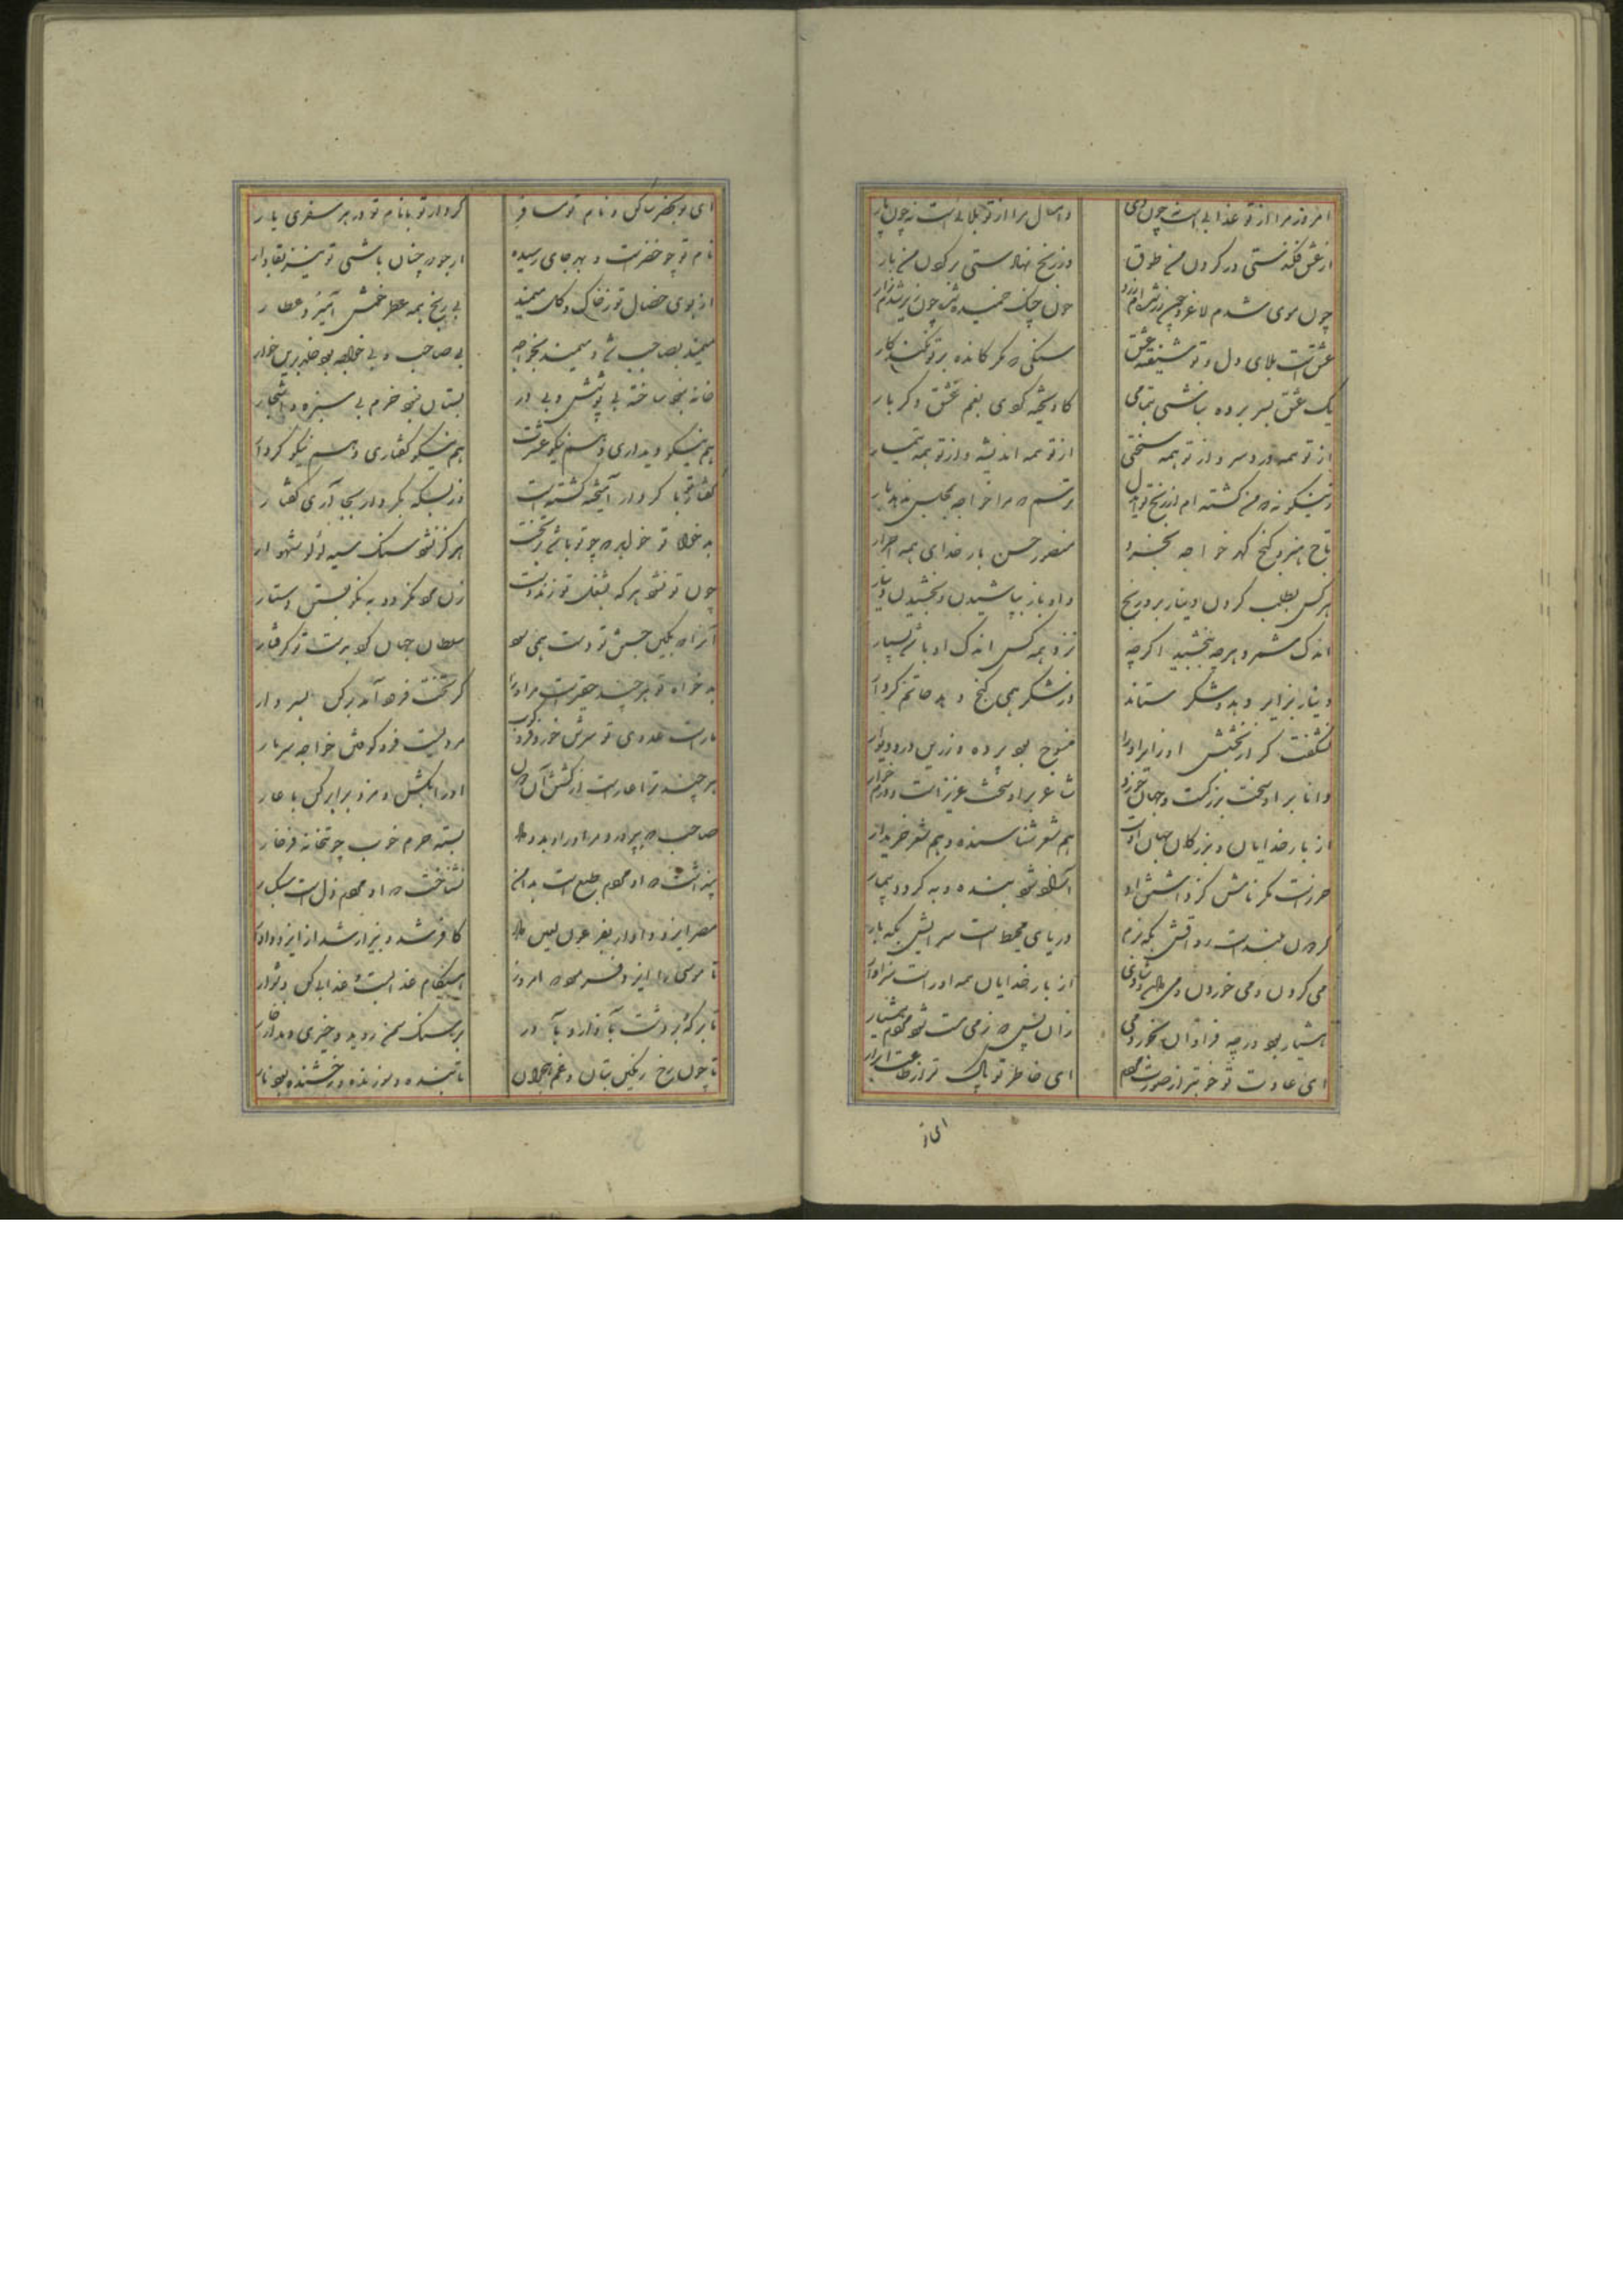 امروز مرا از تو عذابی است چون دی
و امسال مرا از تو بلایی است نه چون پار
از عشق فکندستی در گردن من طوق
وز رنج نهادستی بر گردن من بار
چون موی شدم لاغر و
چون چنگ خمیده شده چون زیر شدم زار
عشقت بلای دل و تو شیفته عشق
سنگی که مگر کاند بر تو نکند کار
یک عشق بسر برده نباشی بتمامی
کاویخته کردی بغم عشق دگر بار
از تو همه درد سر و از تو همه سختی
از تو همه اندیشه و از تو همه تیمار
زینگونه که من گشته ام از رنج تو ایدل
ترسم که مرا خواجه بمجلس ندهد بار
تاج هنر و گنج گهر خواجه
منصور حسن بار خدای همه احرار
هر کس بطلب کردن دینار برد رنج
و او باز بپاشیدن و بخشیدن دینار
اندک شمرد هرچه ببخشید اگر چه
نزد همه کس اندک او باشد بسیار
دینار بزایر دهد و شکر ستاند
وز شکر همی گنج نهد خاتم کردار
نشگفت گر از بخشش او زایر او را
منسوج بود پرده و زرین در و دیوار
دانا بر او سخت بزرگست و جهان خورد
شاعر بر او سخت عزیز است و درم خوار
از بار خدایان و بزرگان جهان اوست
هم شعر شناسنده و هم شعر خریدار
حرزست مگر نامش کز داشتن او
آسوده شود بنده و به گردد بیمار
گردون بلندست رواقش بگه بزم
دریای محیط است سرایش بگه بار
می کردن و می خوردن و می شادی
از بار خدایان همه او راست سزاوار
هشیار بود گرچه فراوان بخورد می
زان پس که ز می مست شود مردم هشیار
ای عادت تو خوبتر از صورت مردم
ای خاطر تو پاک تر از طاعت ابرار
ای تو
ای تو بحضر ساکن و نام تو مسافر
کردار تو با نام تو در هر سفری یار
نام تو چو خضرست و بهر جای رسیده
ار جو که چنان باشی تو نیز بقادار
از بوی خصال تو ز خاک و گل میمند
بی رنج همه عطر خمش آمیزد عطار
میمند بصاحب شد و میمند بخواجه
بی صاحب و بی خواجه بود خلد برین خوار
خانه نبود ساخته بی پوشش و بی در
بستان نبود خرم بی سبزه و اشجار
هم نیکو دیداری و هم نیکو عشرت
هم نیکو گفتاری و هم نیکو کردار
گفتار تو با کردار آمیخته گشته است
زر بسکه بکردار بجا آری گفتار
بدخواه تو خواهد که چو تو باشد زبخت
هرگز نشود سنگ سیه لؤلؤ شهوار
چون تو نشود هر که بشغل تو زند دست
زن مرد نگردد به نکو بستن دستار
آنرا که بکین جستن تو دست همی سود
سلطان جهان کرد بدست تو گرفتار
بدخواه تو هر چند حقیرست مر او را
گر تخت فرود آمد بر کن بسر دار
مارست عدوی تو سرش خرد فرو کوب
مردیست فرو کوفتن خواجه سر مار
هر چند ترا عارست از کشتن آن دون
او را بکش و مزد برابر کن با عار
صاحب که بپرورد مر او را و بدو داد
بسته حرم خوب چو بتخانه فرخار
پنداشت که او مردم جمع است بدانست
نشناخت که او مردم ذل است سبکسار
مصر ایزد دادار بفرعون لعین داد
کافر شد و بیزار شد از ایزد دادار
تا موسی را ایزد فرمود که امروز
هنگام عذابست عذابی کن دشوار
تا بر که و بر دشت بآزار و بآذر
بر سنگ سمن روید و خیری دمد از خار
تا چون رخ رنگین بتان و غم هجران
تابنده و سوزنده و رخشنده بود نار